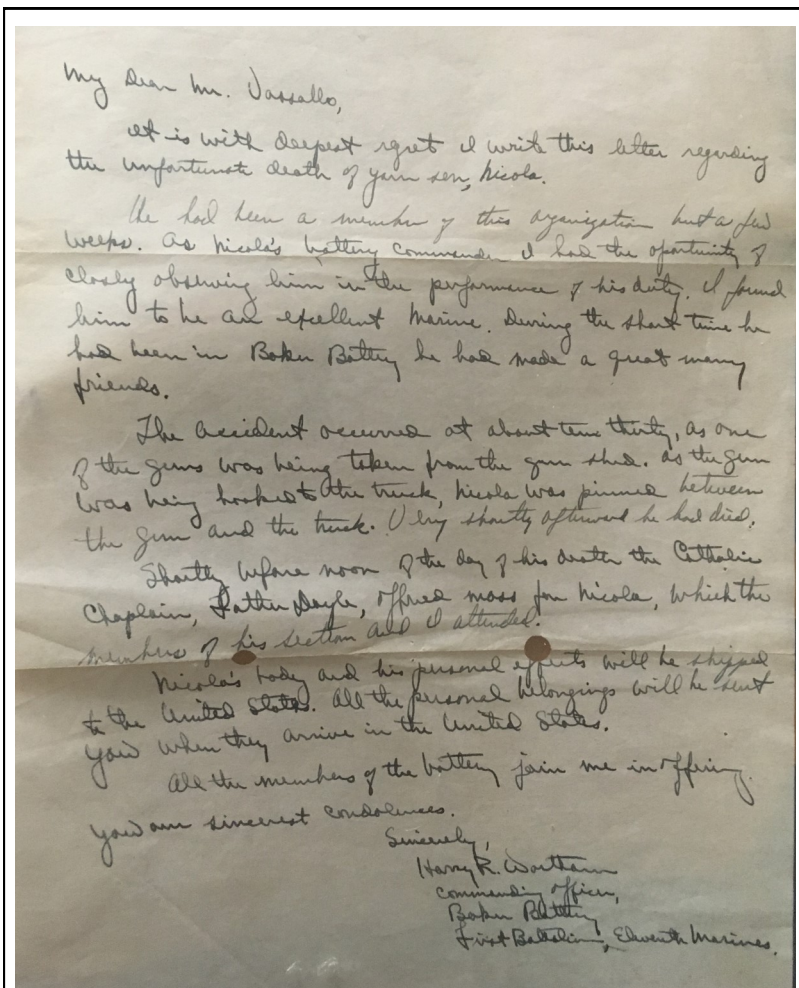 My Dear Mr. Vassallo,
It is with deepest regret I write this letter regarding
the unfortunate death of your son, Nicola.
He had been a member of this organization but a few
weeks. As Nicola's battery commander I had the oportunity of
closely observing him in the performance of his duty. I found
him to be an excellent Marine. During the short time he
had been in Baker Battery he had made a great many
friends.
The accident occurred at about ten thirty, as one
of the guns was being taken from the gun shed. As the gun
was being hooked to the truck, Nicola was pinned between
the gun and the truck. Very shortly afterward he had died.
Shortly before noon of the day of his death the Catholic
Chaplain, Father Doyle, offered mass for Nicola, which the
members of his section and I attended.
Nicola's body and his personal effects will be shipped
to the United States. All the personal belongings will be sent
you when they arrive in the United States.
All the members of the battery join me in offering
you our sincerest condolences.
Sincerely,
Harry R. Wortham
Commanding officer,
Baker Battery
First Battalion, Eleventh Marines.